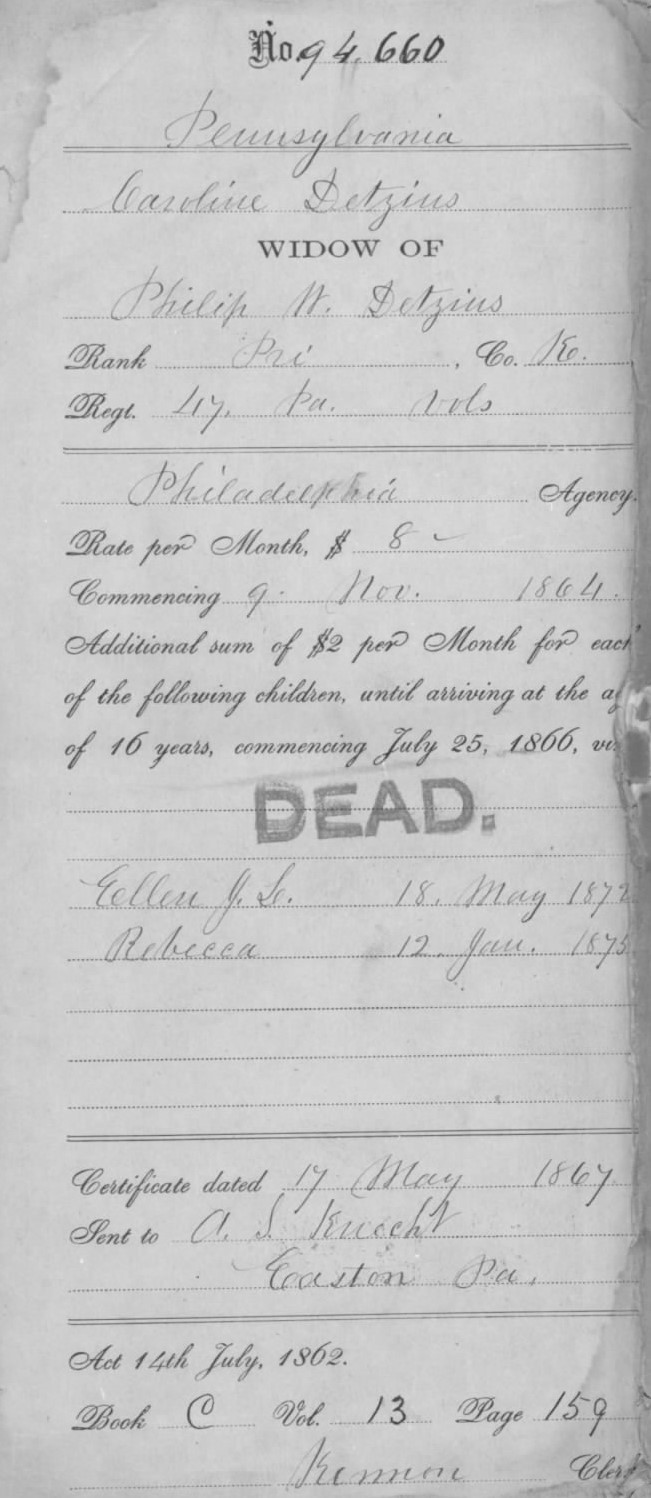 No. 94,660
Pennsylvania
Caroline Detzius
WIDOW OF
Philip W. Detzius
Rank Pri , Co. K.
Regt. 47. Pa. Vols
Philadelphia Agency.
Rate per Month, $ 8
Commencing 9. Nov. 1864.
Additional sum of $2 per Month for each
of the following children, until arriving at the ag
of 16 years, commencing July 25, 1866, viz
DEAD.
Ellen J. L. 18. May 1872
Rebecca 12. Jan. 1875
Certificate dated 17 May 1867.
Sent to A. S. Knecht
Easton Pa.
Act 14th July, 1862.
Book C Vol. 13 Page 159
Kennon Clerk